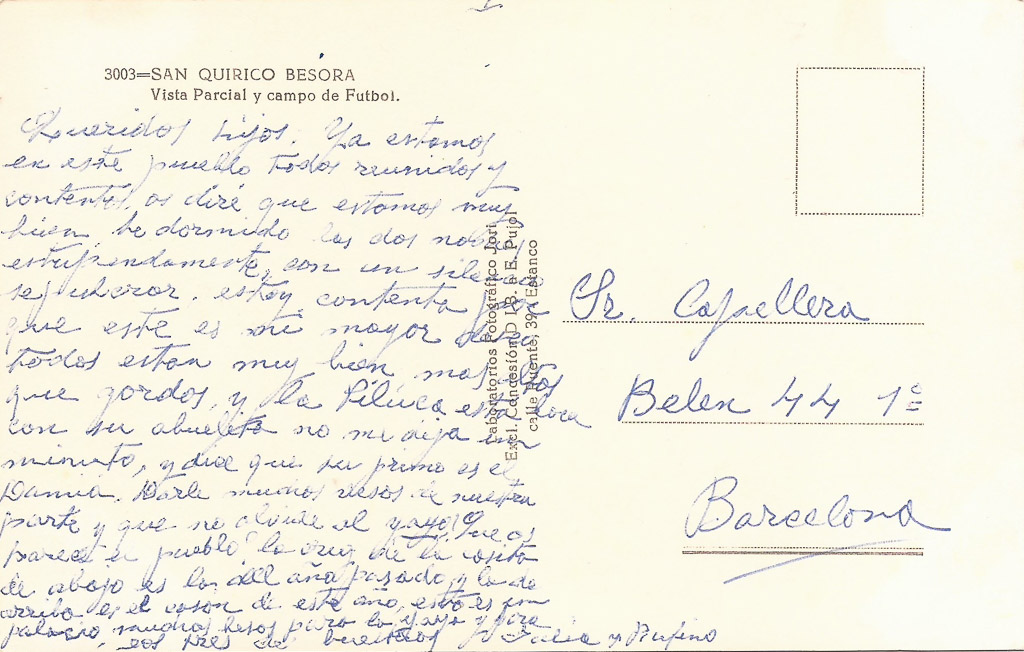 3003=SAN QUIRICO BESORA
Vista Parcial y campo de Futbol.
Queridos hijos. Ya estamos
en este pueblo todos reunidos y
contentos, os diré que estamos muy
bien he dormido las dos noches
estupendamente, con un silencio
sepulcror. estoy contenta por
que este es mi mayor
todos estan muy bien mas
que gordos, y la Piluca esta loca
con su abuelita no me deja un
minuto, y dice que su primo es el
Damiá. Darle muchos vesos de nuestra
parte y que no olvide al yayo. Que os
parece el pueblo? la cruz de la casita
de abajo es la del año pasado, y la de
arriba es el cason de este año, esto es un
palacio, muchos besos para la yaya y
los tres de vuestros Julia y Rufino
Laboratorios Fotográfico Jori
Excl. Concesión D I B. a E. Pujol
calle Puente, 39 - Estanco
Sr. Capellera
Belen 44 1º
Barcelona